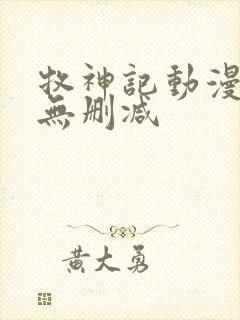 牧神記動漫
無刪減
黃大勇